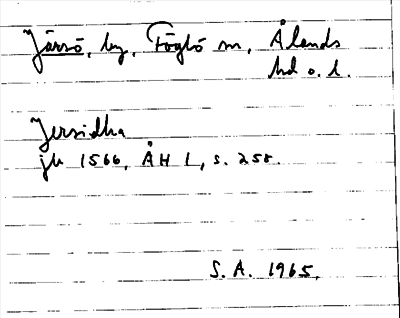 Järsö, by, Föglö sn, Ålands
hd o. l.
Jersidha
jb 1566, ÅH 1, s. 258.
S. A. 1965.